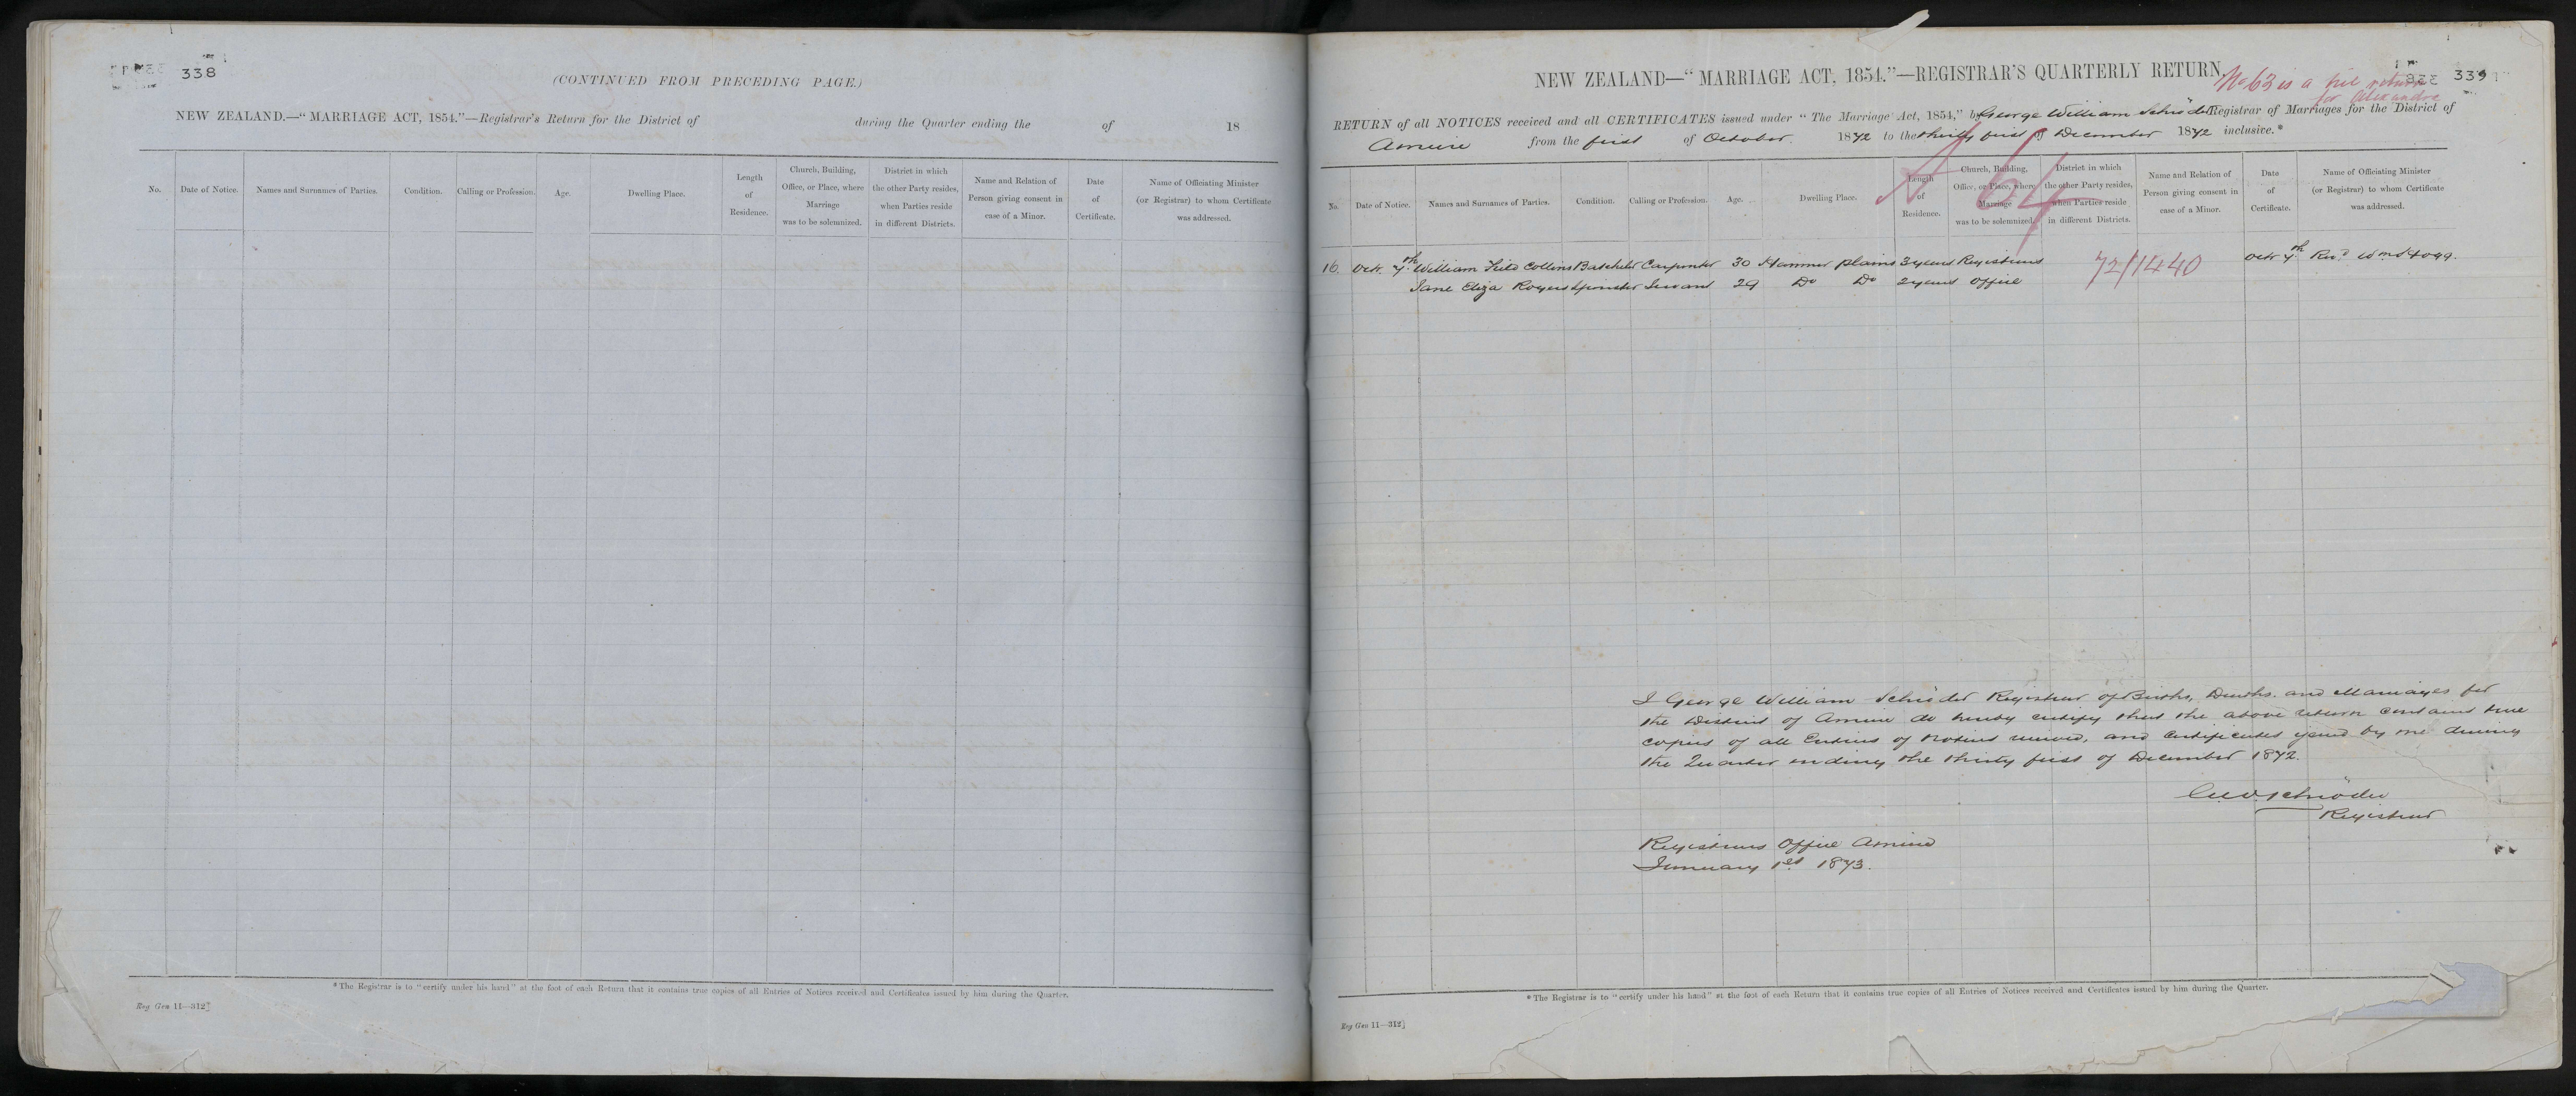 338
(CONTINUED FROM PRECEDING PAGE.)
NEW ZEALAND.—"MARRIAGE ACT, 1854."—Registrar's Return for the District of during the Quarter ending the of 18
No. Date of Notice. Names and Surnames of Parties. Condition. Calling or Profession. Age. Dwelling Place. Length of Residence. Church, Building, Office, or Place, where Marriage was to be solemnized. District in which the other Party resides, when Parties reside in different Districts. Name and Relation of Person giving consent in case of a Minor. Date of Certificate. Name of Officiating Minister (or Registrar) to whom Certificate was addressed.
*The Registrar is to "certify under his hand" at the foot of each Return that it contains true copies of all Entries of Notices received and Certificates issued by him during the Quarter.
Reg Gen 11—312]
339
NEW ZEALAND—"MARRIAGE ACT, 1854."—REGISTRAR'S QUARTERLY RETURN.
No 63 is a nil return
for Alexandra
RETURN of all NOTICES received and all CERTIFICATES issued under "The Marriage Act, 1854," by George William Schröder Registrar of Marriages for the District of
Amuri from the first of October 1872 to the thirty first of December 1872 inclusive.*
64
No. Date of Notice. Names and Surnames of Parties. Condition. Calling or Profession. Age. Dwelling Place. Length of Residence. Church, Building, Office, or Place, where Marriage was to be solemnized. District in which the other Party resides, when Parties reside in different Districts. Name and Relation of Person giving consent in case of a Minor. Date of Certificate. Name of Officiating Minister (or Registrar) to whom Certificate was addressed.
16. Octr 7th William Collins Batchelor Carpenter 30 Hanmer plains 3 years Registrars 72/1440 Octr 7th Revd Wm Hogg.
Jane Eliza Rogers Spinster Servant 29 Do Do 2 years Office
I George William Schröder Registrar of Births, Deaths. and Marriages for
the District of Amuri do hereby certify that the above return contains true
copies of all Entries of Notices received, and Certificates issued by me during
the Quarter ending the thirty first of December 1872.
Geo W Schröder
Registrar
Registrars Office Amuri
January 1st 1873.
*The Registrar is to "certify under his hand" at the foot of each Return that it contains true copies of all Entries of Notices received and Certificates issued by him during the Quarter.
Reg Gen 11—312]